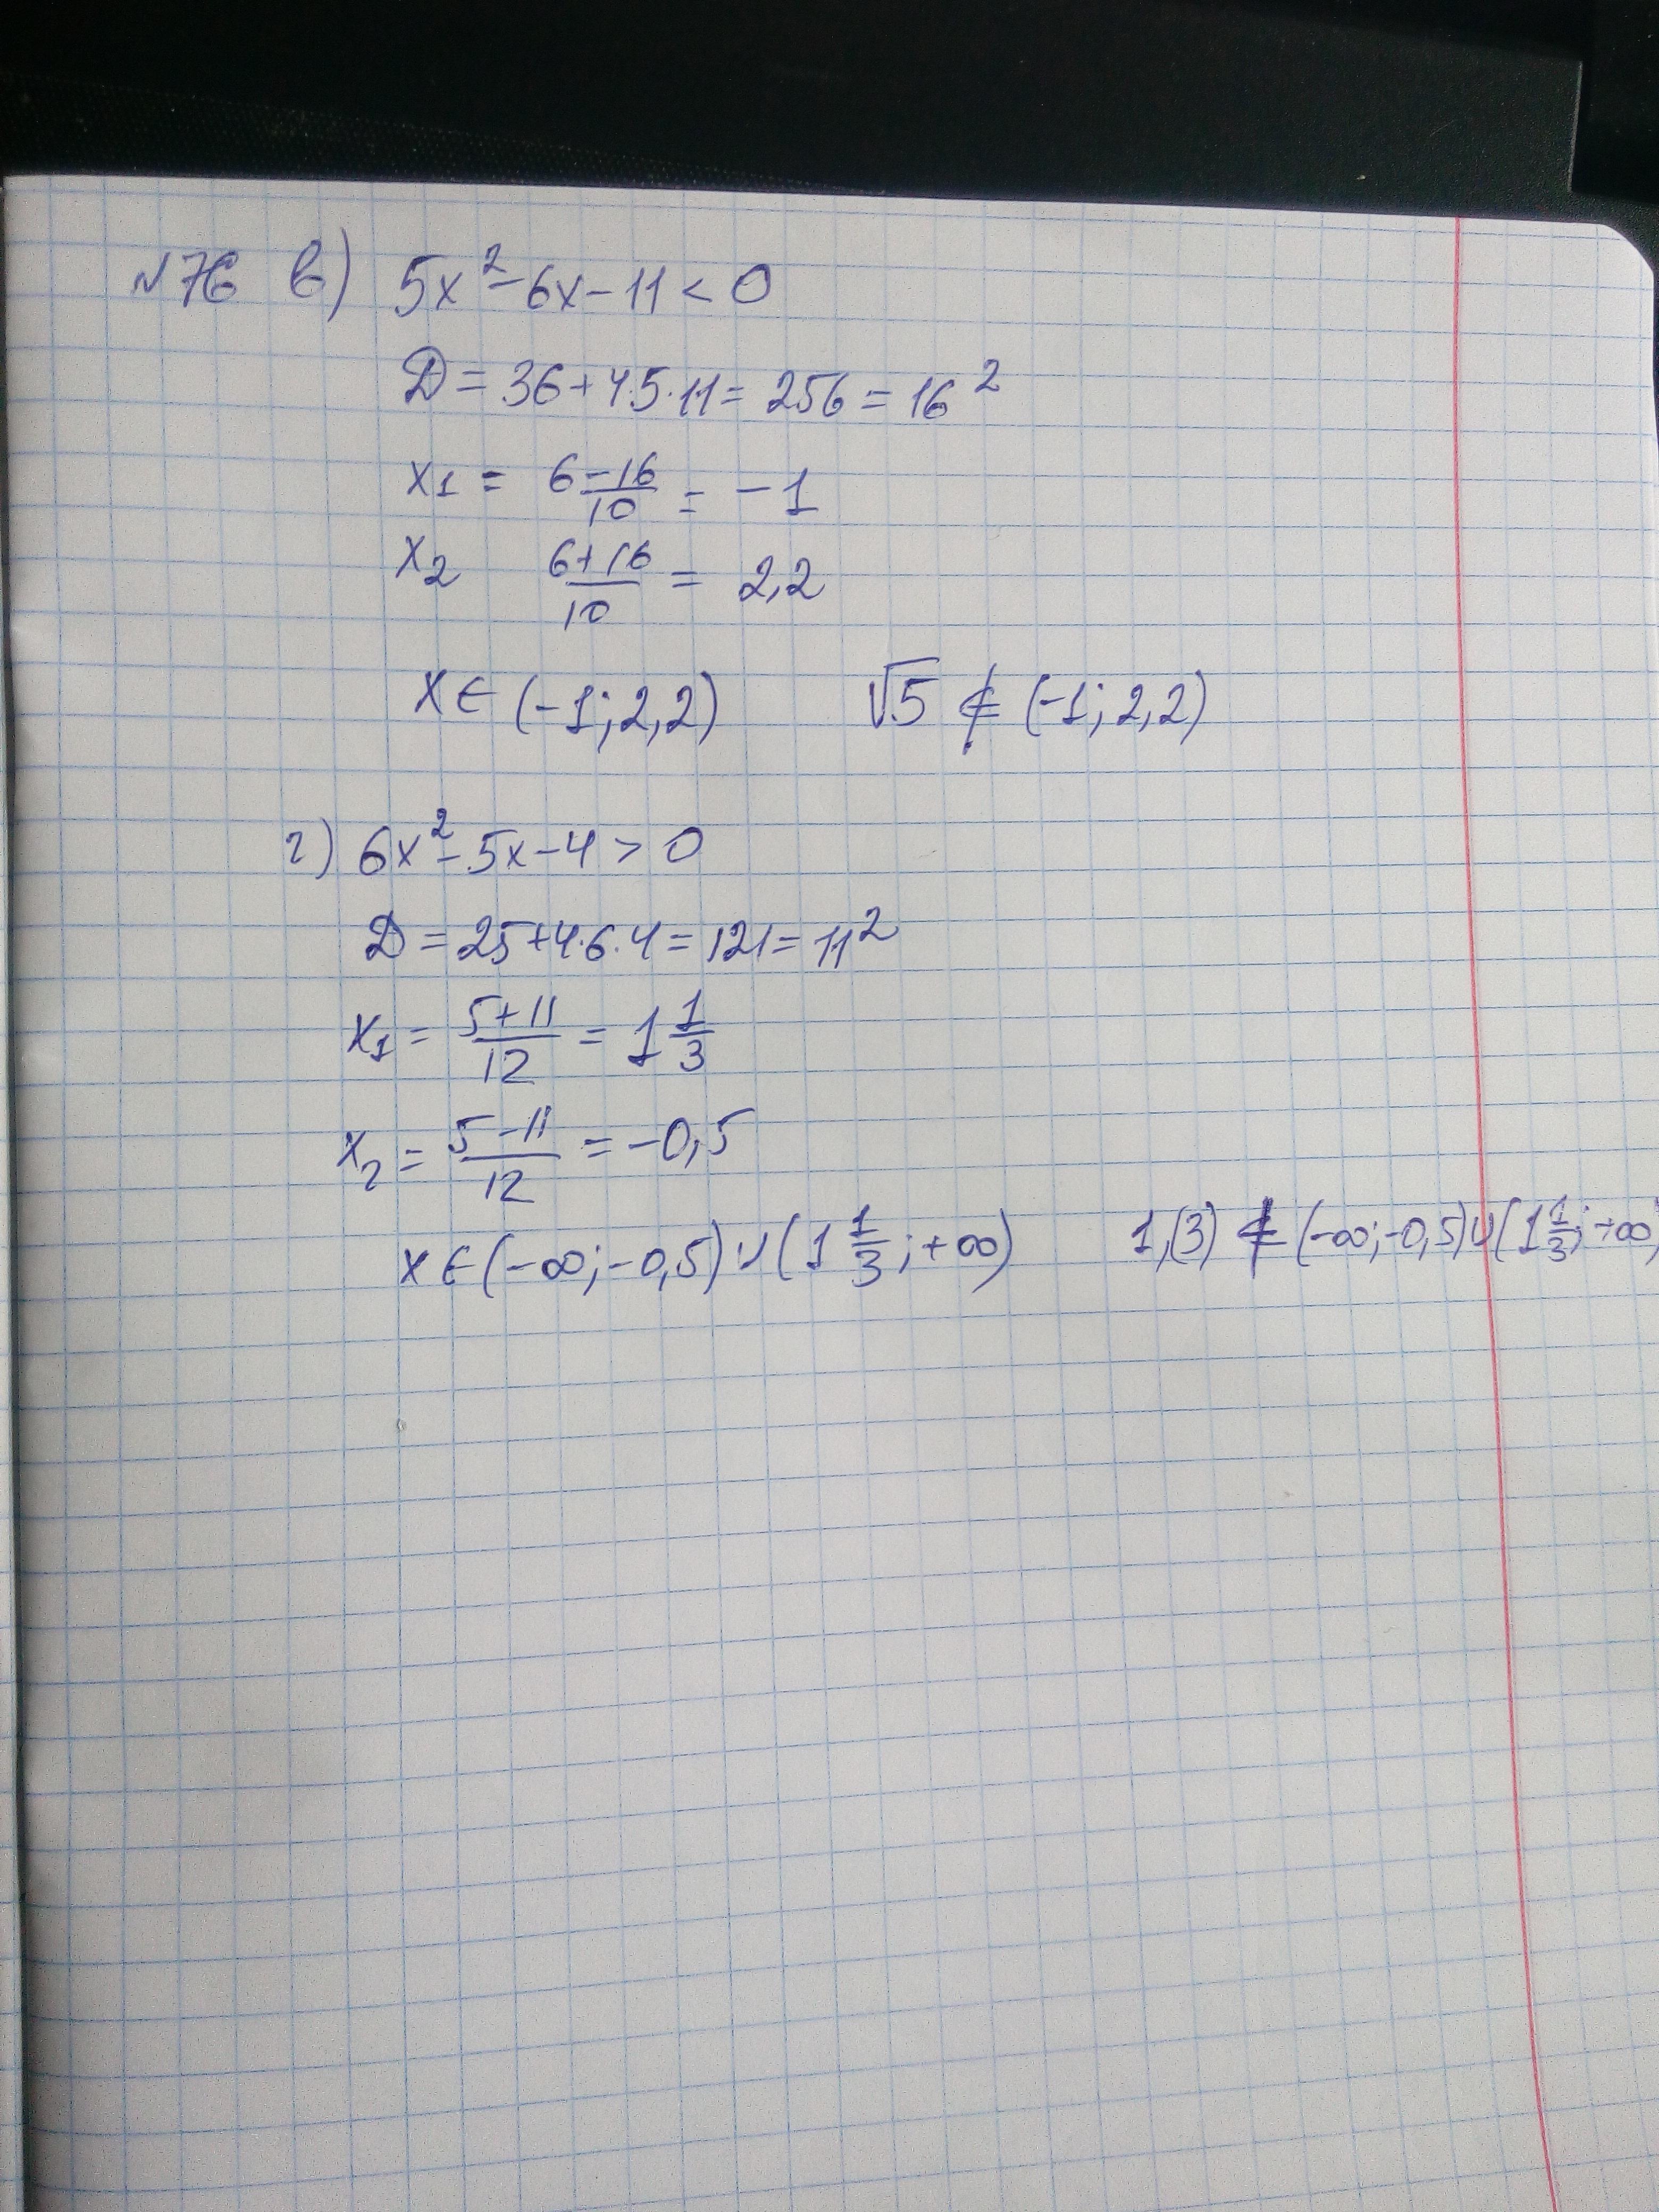 №76 в) 5x² - 6x - 11 < 0
D = 36 + 4·5·11 = 256 = 16²
x₁ = 6-16/10 = -1
x₂ 6+16/10 = 2,2
x ∈ (-1; 2,2) √5 ∉ (-1; 2,2)
г) 6x² - 5x - 4 > 0
D = 25 + 4·6·4 = 121 = 11²
x₁ = 5+11/12 = 1 1/3
x₂ = 5-11/12 = -0,5
x ∈ (-∞; -0,5) ∪ (1 1/3; +∞) 1,(3) ∉ (-∞; -0,5) ∪ (1 1/3; +∞)